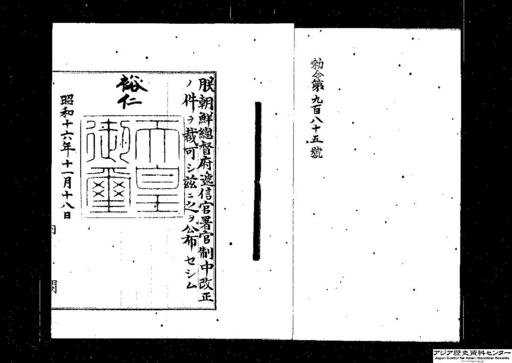 勅令第九百八十五號
朕朝鮮總督府遞信官署官制中改正
ノ件ヲ裁可シ茲ニ之ヲ公布セシム
裕仁
天皇御璽
昭和十六年十一月十八日
アジア歴史資料センター
Japan Center for Asian Historical Records